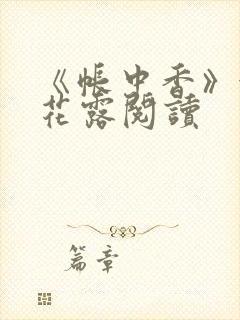 《帳中香》
花露閱讀
篇章